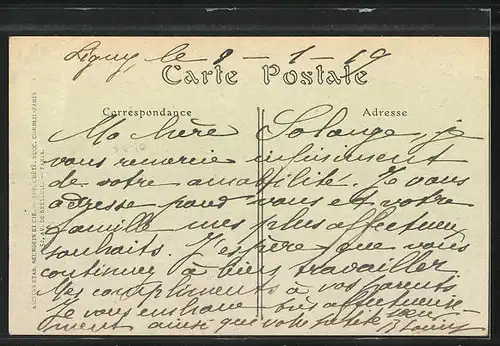 Ligny, le 8 - 1 - 19
Carte Postale
Correspondance
Adresse
Ma chère Solange, je
vous remercie infiniment
de votre amabilité. Je vous
adresse pour vous et votre
famille mes plus affectueux
souhaits. J'espère que vous
continuez à bien travailler
Mes compliments à vos parents
Je vous embrasse très affectueuse-
ment ainsi que votre petite sœur